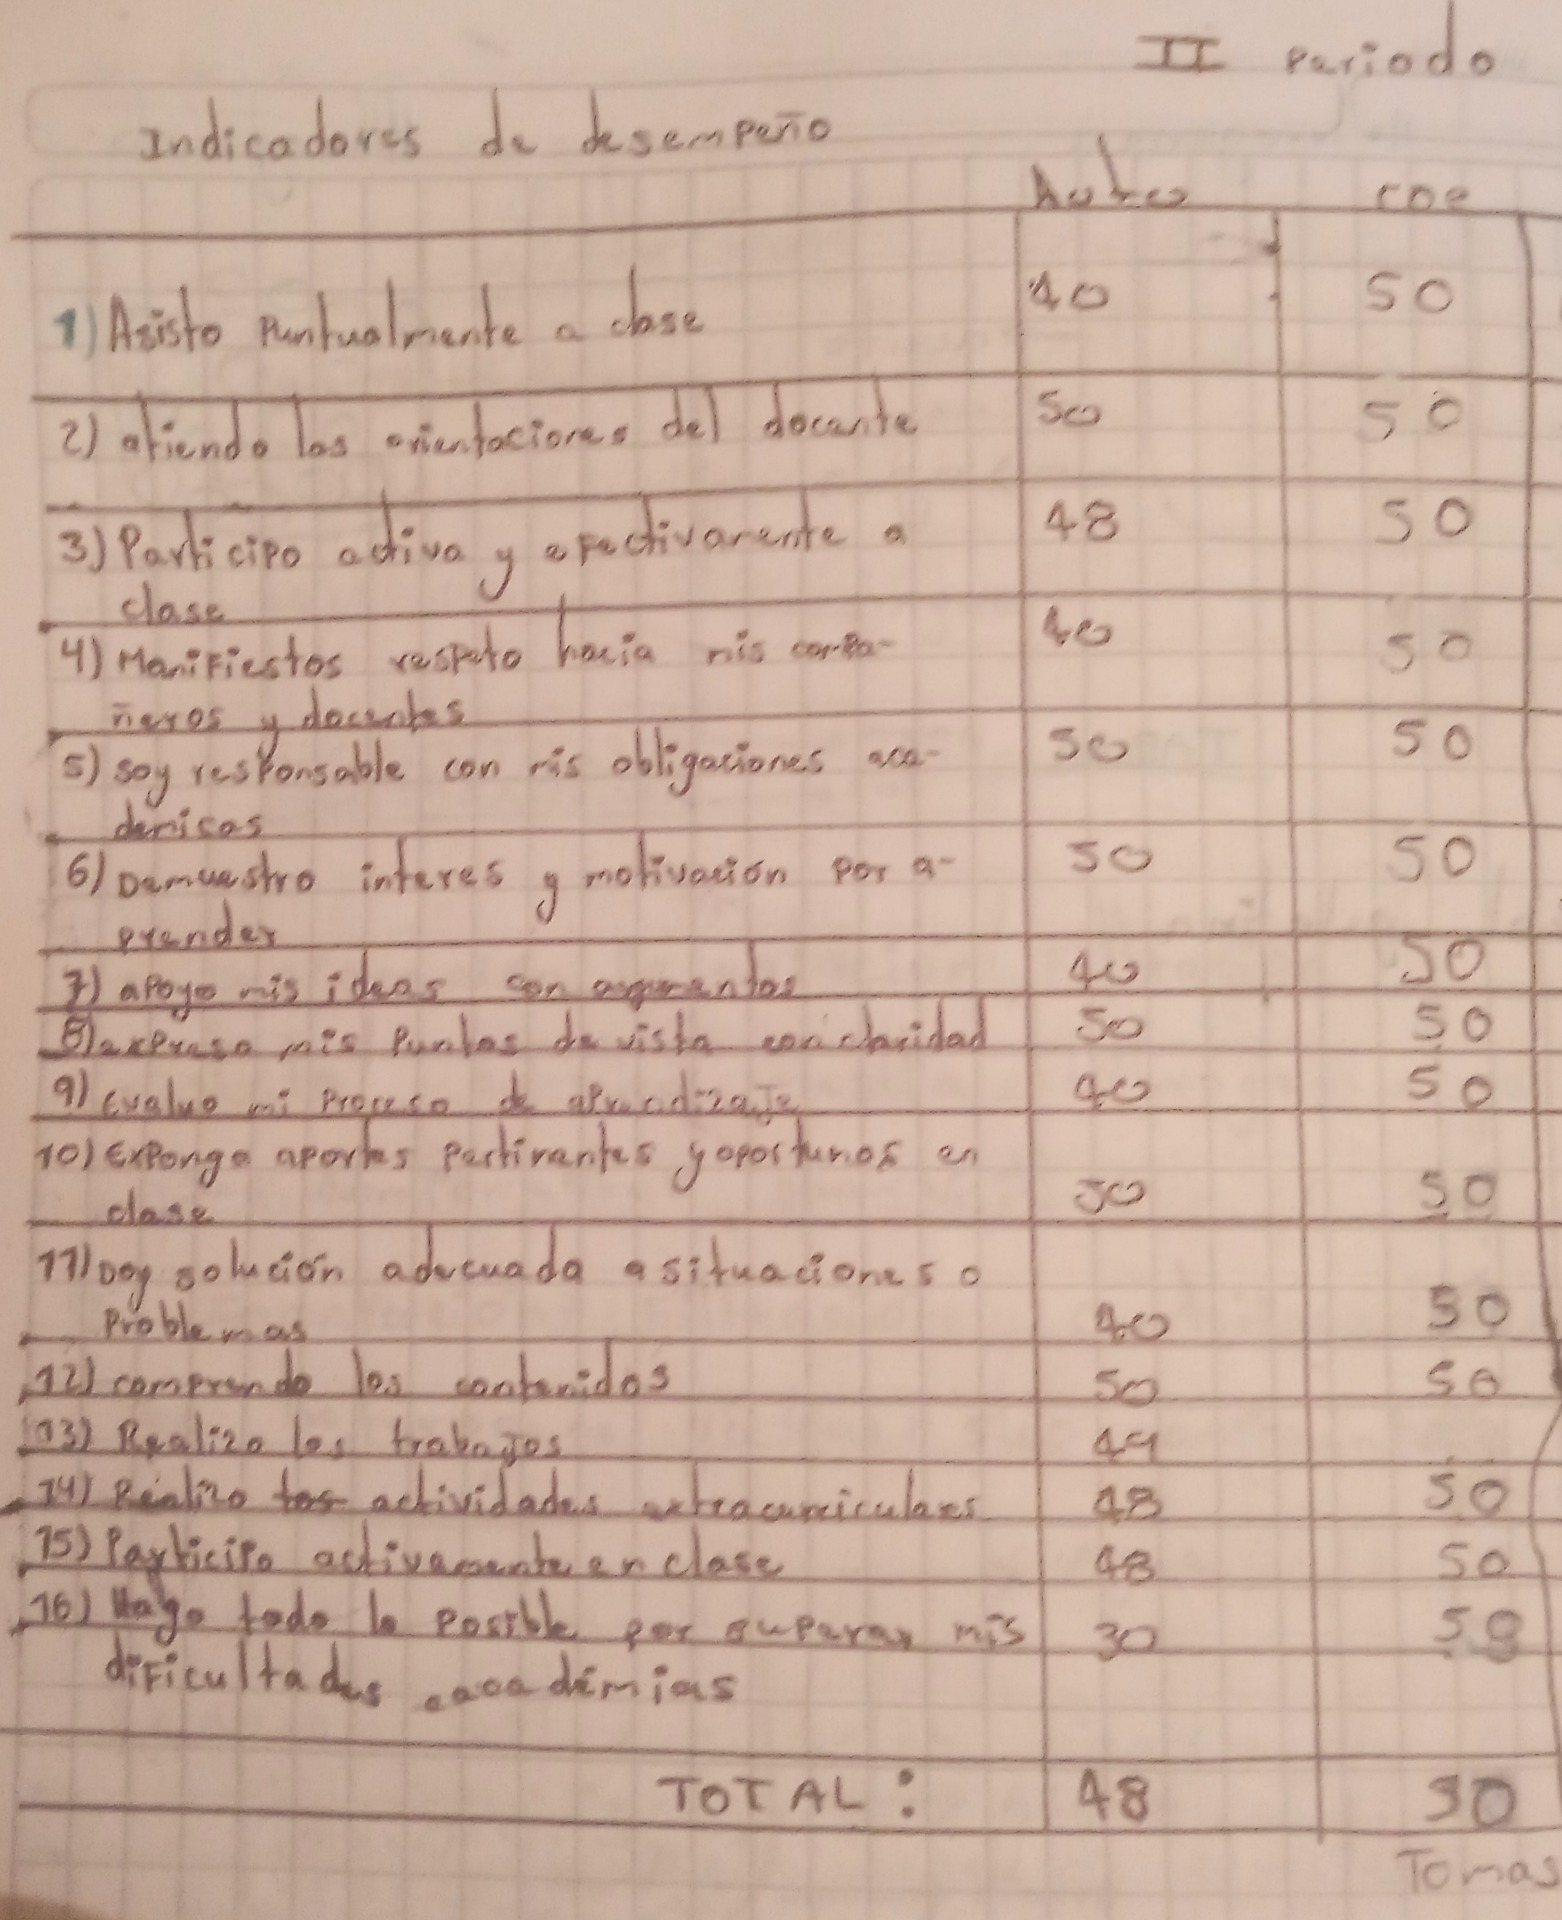 II Periodo
Indicadores de desempeño
Auto coe
1) Asisto Puntualmente a clase 40 50
2) atiendo las orientaciones del docente 50 50
3) Participo activa y efectivamente a 48 50
clase
4) Manifiestos respeto hacia mis compa- 40 50
ñeros y docentes
5) soy responsable con mis obligaciones aca- 50 50
demicas
6) Demuestro interes y motivación por a- 50 50
prender
7) apoyo mis ideas con argumentos 40 50
8) expreso mis Puntos de vista con claridad 50 50
9) evaluo mi Proceso de aprendizaje 40 50
10) Exponga aportes pertinantes y oportunos en
clase 50 50
11) Doy solución adecuada a situaciones o
Problemas 40 50
12) comprendo los contenidos 50 50
13) Realizo los trabajos 49
14) Realizo las actividades extracurriculares 48 50
15) Participo activamente en clase 48 50
16) Hago todo lo posible por superar mis 30 50
dificultades académias
TOTAL: 48 50
Tomas